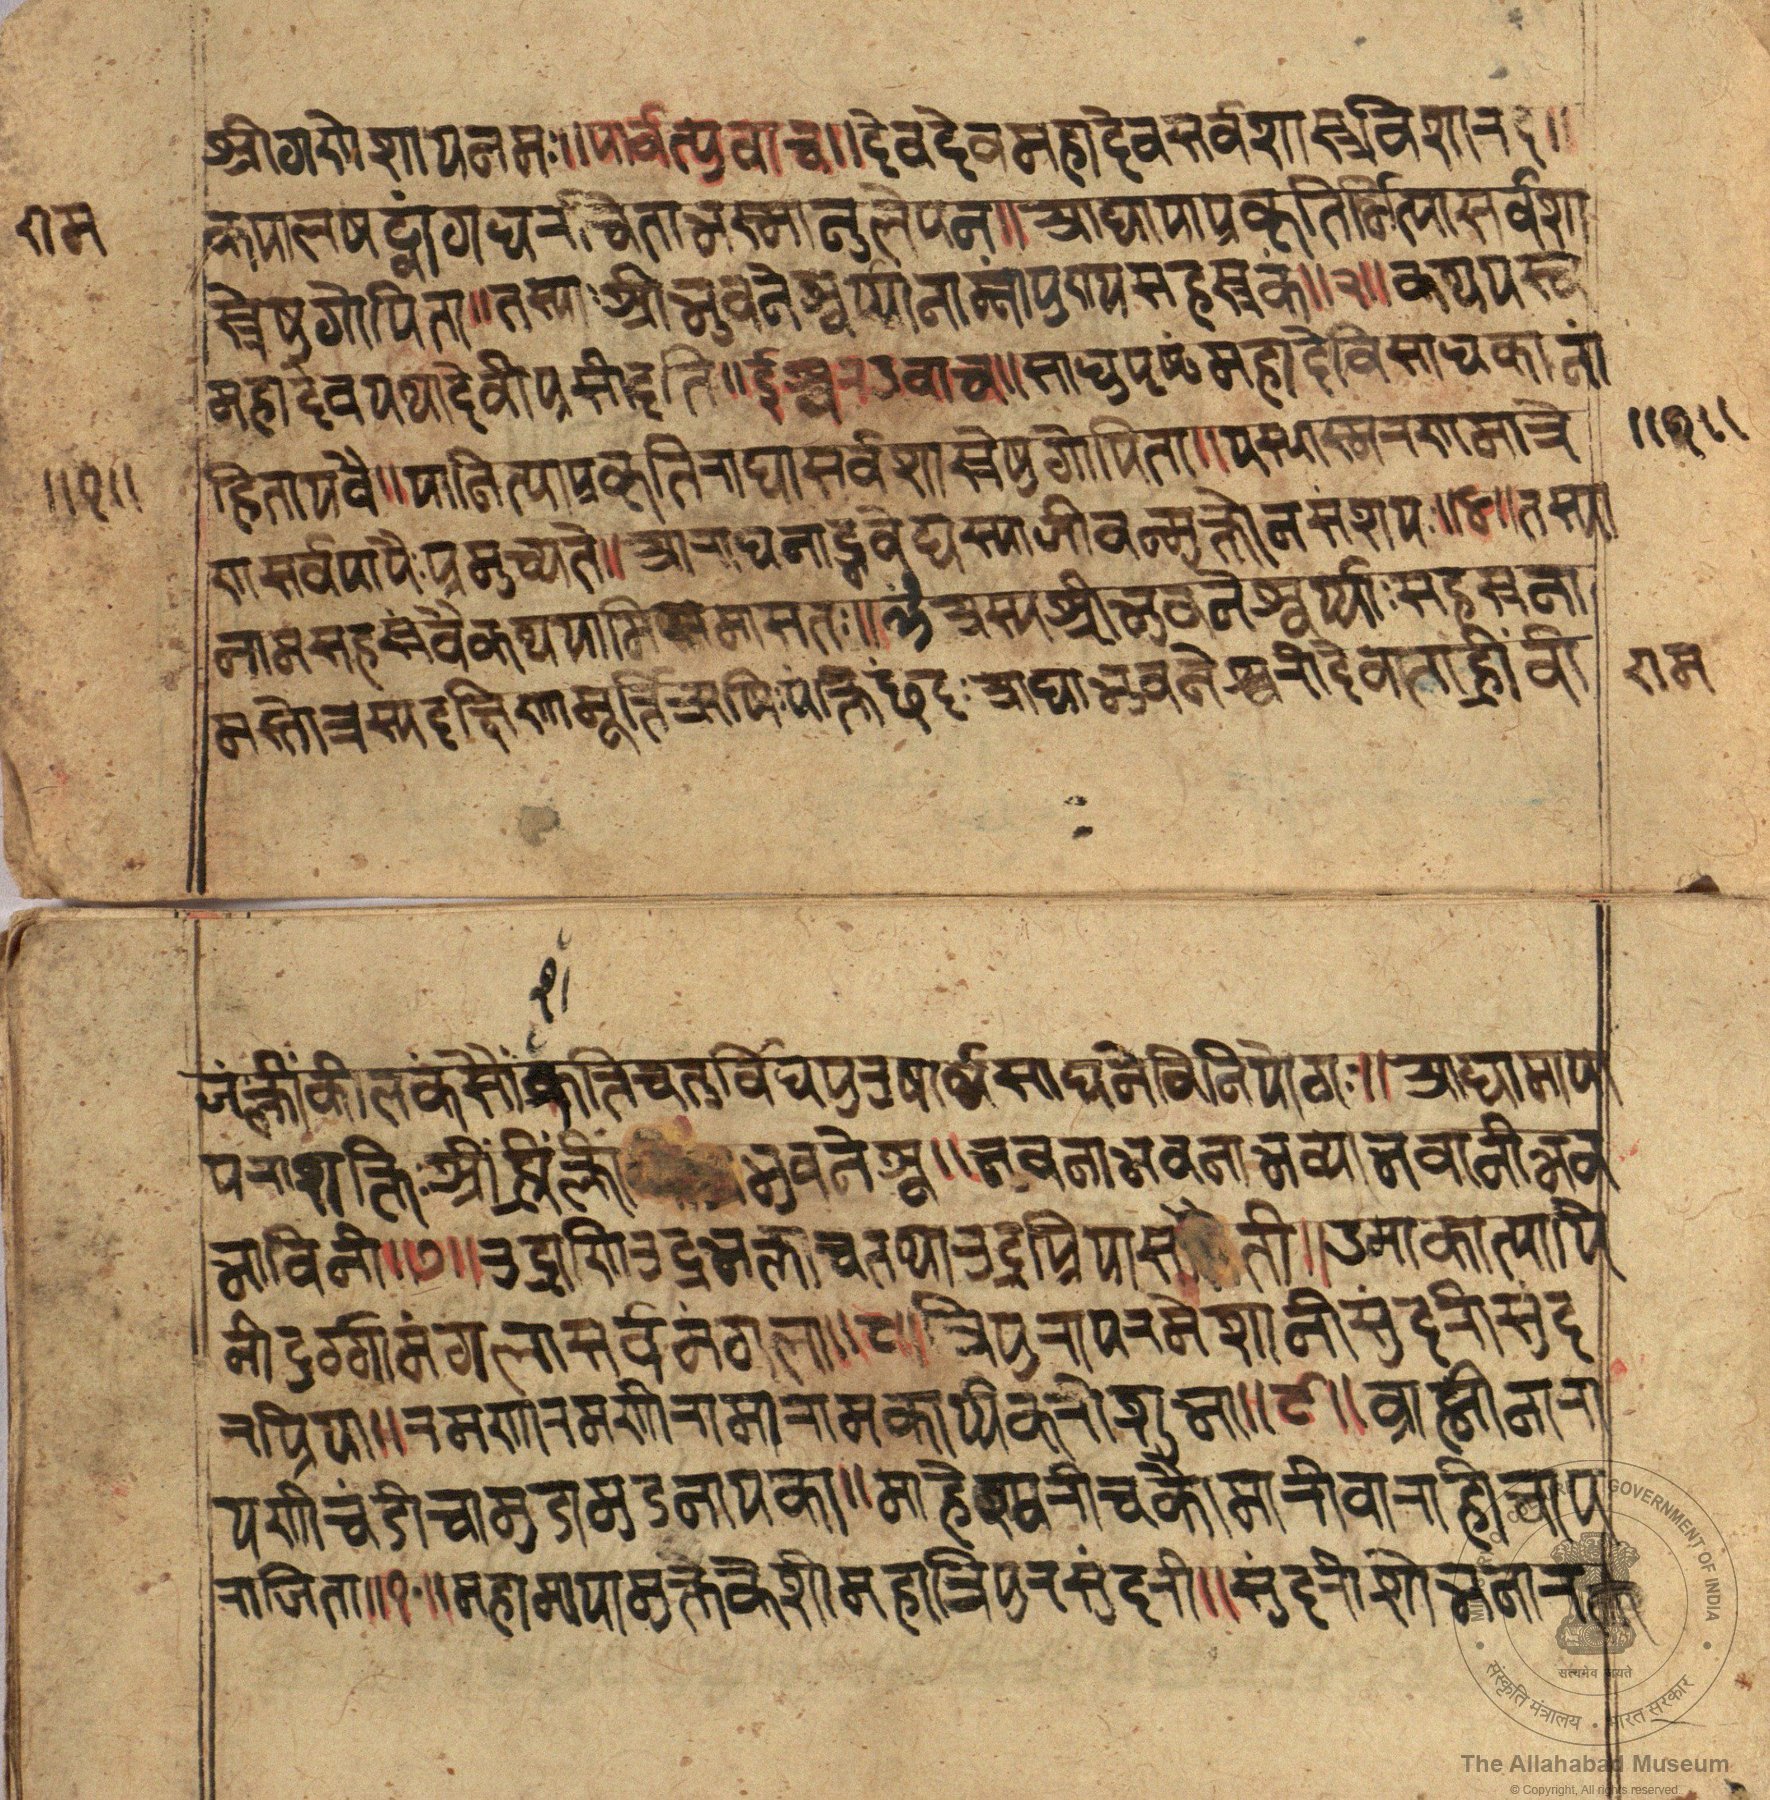 श्रीगणेशायनमः॥पार्वत्युवाच॥देवदेवमहादेवसर्वशास्त्रविशारद॥
राम
कपालषट्वांगधरचिताभस्मानुलेपन॥आद्यायाप्रकृतिर्नित्यासर्वशा
स्त्रेषुगोपिता॥तस्याःश्रीभुवनेश्वर्य्यानाम्नांपुण्यसहस्रकं॥२॥कथयस्व
महादेवयथादेवीप्रसीदति॥ईश्वरउवाच॥साधुपृष्टंमहादेविसाधकानां
॥१॥
हितायवै॥यानित्याप्रकृतिराद्यासर्वशास्त्रेषुगोपिता॥यस्याःस्मरणमात्रे
॥१॥
णसर्वपापैःप्रमुच्यते॥आराधनाद्भवेद्यस्याजीवन्मुक्तोनसंशयः॥४॥तस्या
नामसहस्रंवैकथयामिसमासतः॥ॐअस्यश्रीभुवनेश्वर्य्याःसहस्रना
मस्तोत्रस्यदक्षिणामूर्त्तिऋषिःपंक्तिछंदःआद्याभुवनेश्वरीदेवताह्रींवी
राम
१।
जंक्लींकीलकंसौंःशक्तिचतुर्विधपुरुषार्थसाधनेविनियोगः॥आद्यामाया
पराशक्तिःश्रींह्रींक्लीं भुवनेश्व॥भवनाभवनाभव्याभवानीभव
भाविनी॥७॥रुद्राणीरुद्रभक्ताचतथारुद्रप्रियास ती॥उमाकात्यायि
नीदुर्गामंगलासर्वमंगला॥८॥त्रिपुरापरमेशानीसुंदरीसुंद
रप्रिया॥रमणारमणीरामारामकार्य्यकरीशुभा॥९॥ब्राह्मीनारा
यणीचंडीचामुडामुडनायका॥माहेश्वरीचकौमारीवाराहीचाप
राजिता॥१०॥महामायामुक्तकेशीमहात्रिपुरसुंदरी॥सुंदरीशोभनारक्त
MINISTRY OF CULTURE GOVERNMENT OF INDIA
सत्यमेव जयते
संस्कृति मंत्रालय • भारत सरकार
The Allahabad Museum
© Copyright, All rights reserved.